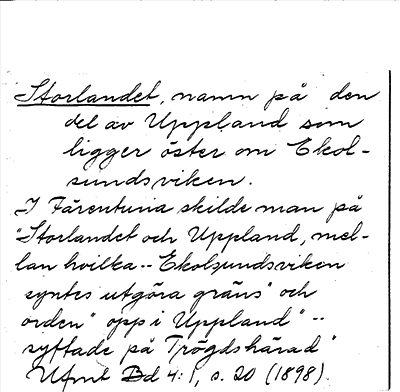 Storlandet, namn på den
del av Uppland som
ligger öster om Ekol-
sundsviken.
I Färentuna skilde man på
"Storlandet och Uppland, mel-
lan hvilka -- Ekolsundsviken
syntes utgöra gräns" och
orden "opp i Uppland" --
syftade på Trögdshärad"
Ufmt Bd 4:1, s. 20 (1898).